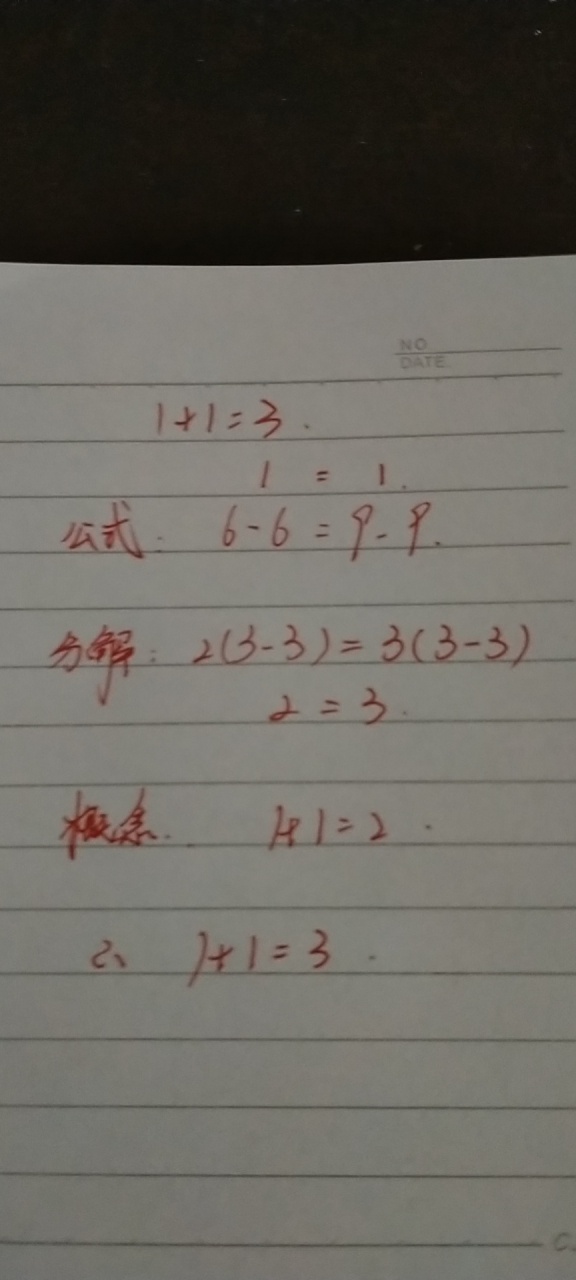 NO
DATE
1+1=3.
1 = 1.
公式: 6-6=9-9.
分解: 2(3-3)=3(3-3)
2=3.
概念. 1+1=2.
2、 1+1=3.